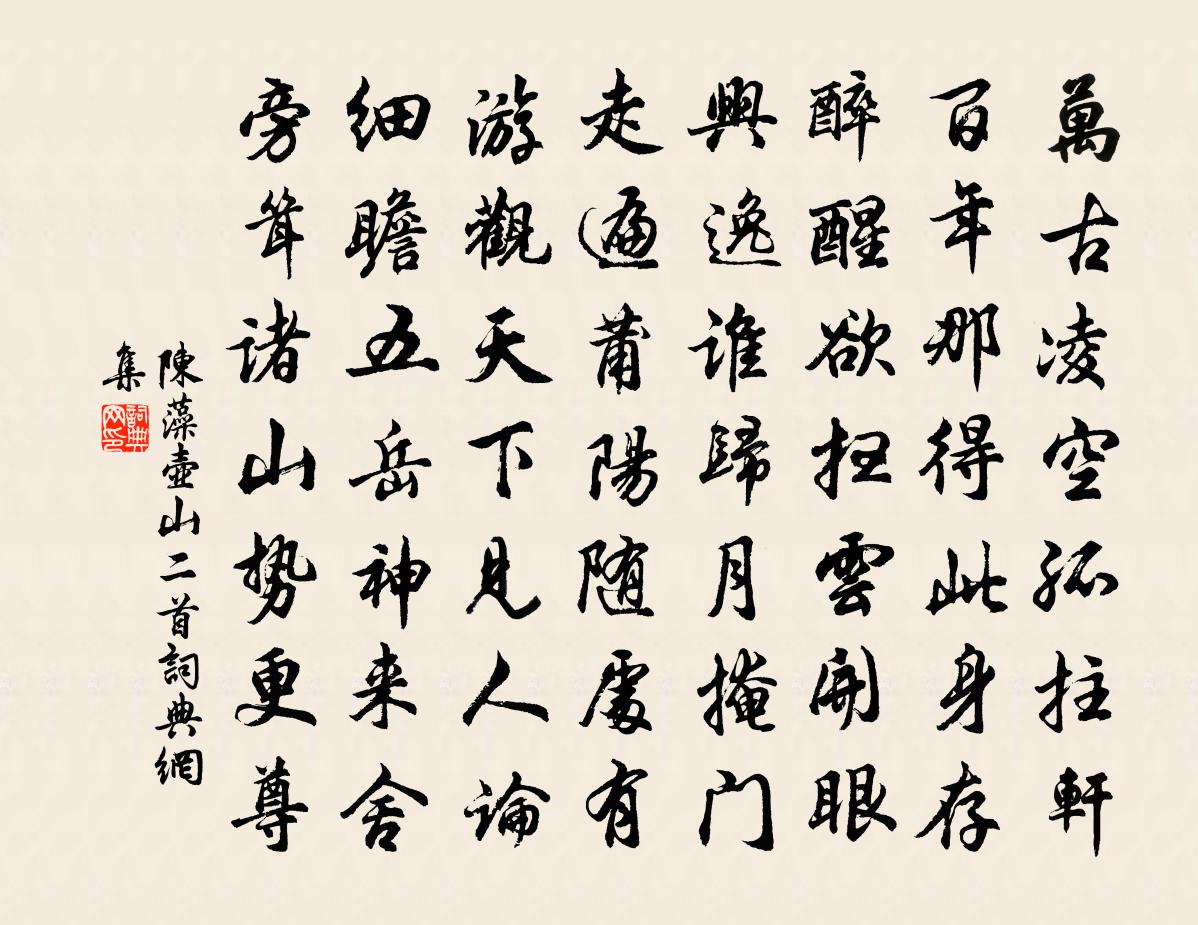 萬古凌空孤拄軒
百年那得此身存
醉醒欲扫雲開眼
興逸谁歸月掩门
走遍莆陽随處有
游觀天下見人論
细瞻五岳神来舍
旁耸诸山势更尊
陳藻壺山二首詞典網
集
詞典
网印